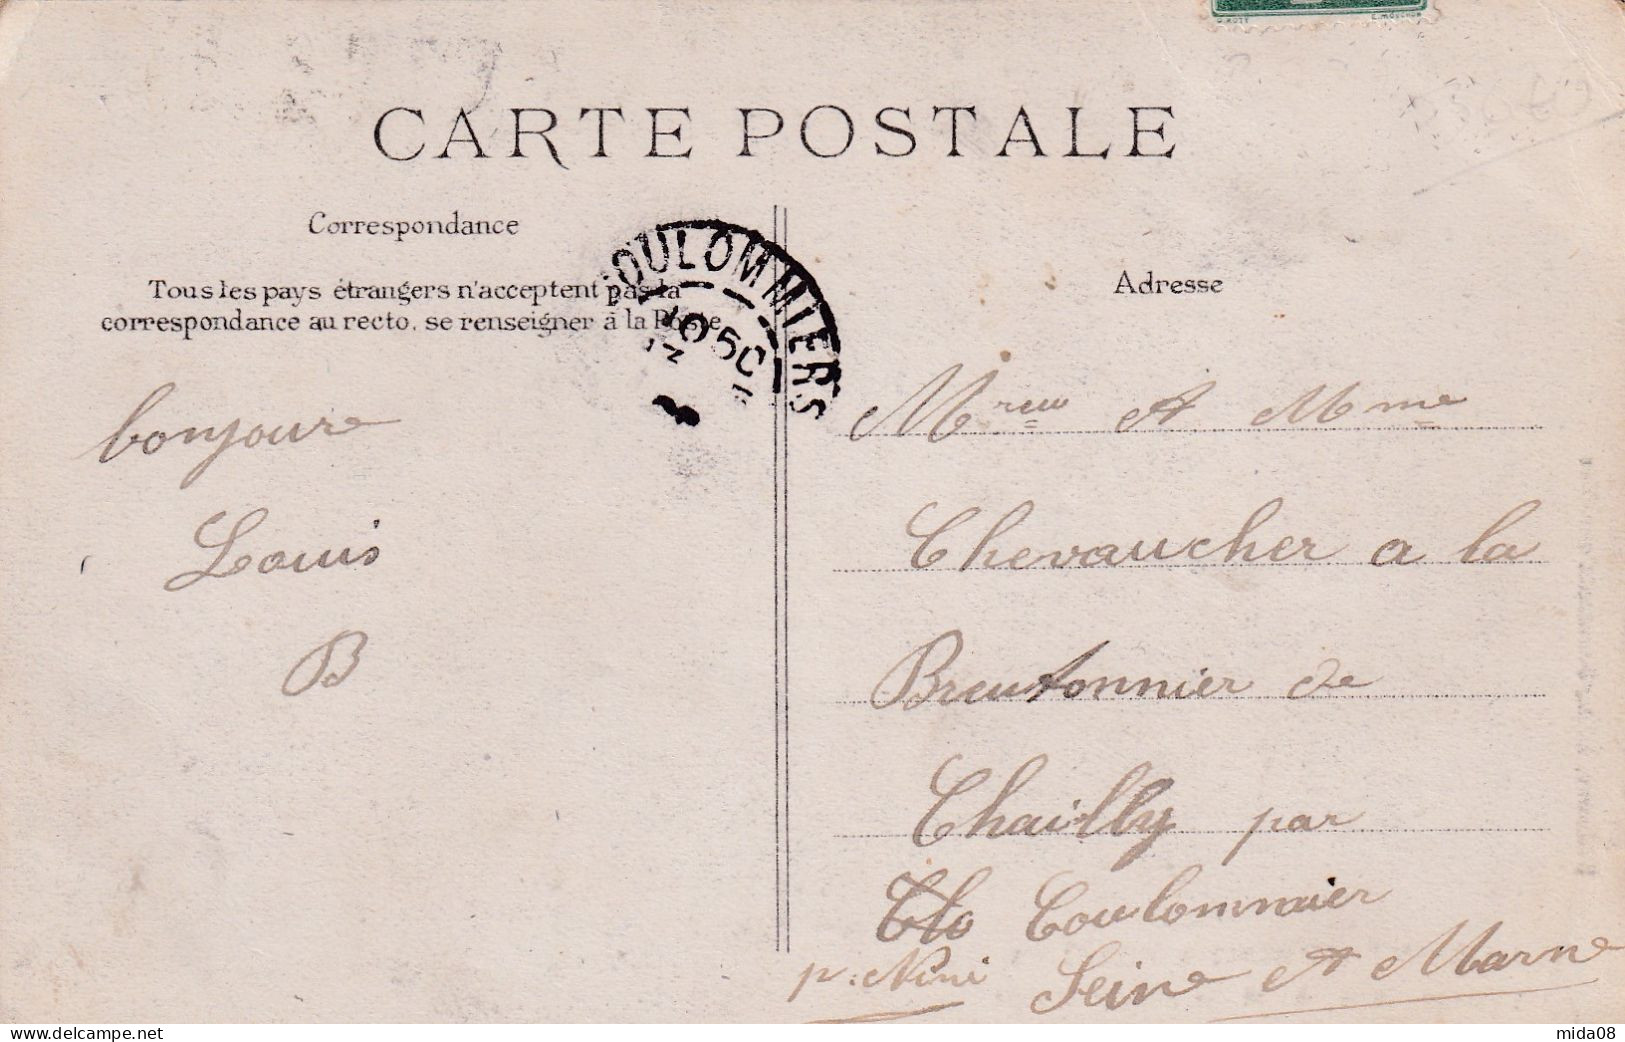 CARTE POSTALE
Correspondance
Tous les pays étrangers n'acceptent pas la
correspondance au recto, se renseigner à la Poste
COULOMMIERS
Adresse
bonjoure
Louis
B
Mreur et Mme
Chevaucher a la
Breutonnier de
Chailly par
Coulommier
p. Nini Seine et Marne
mida08